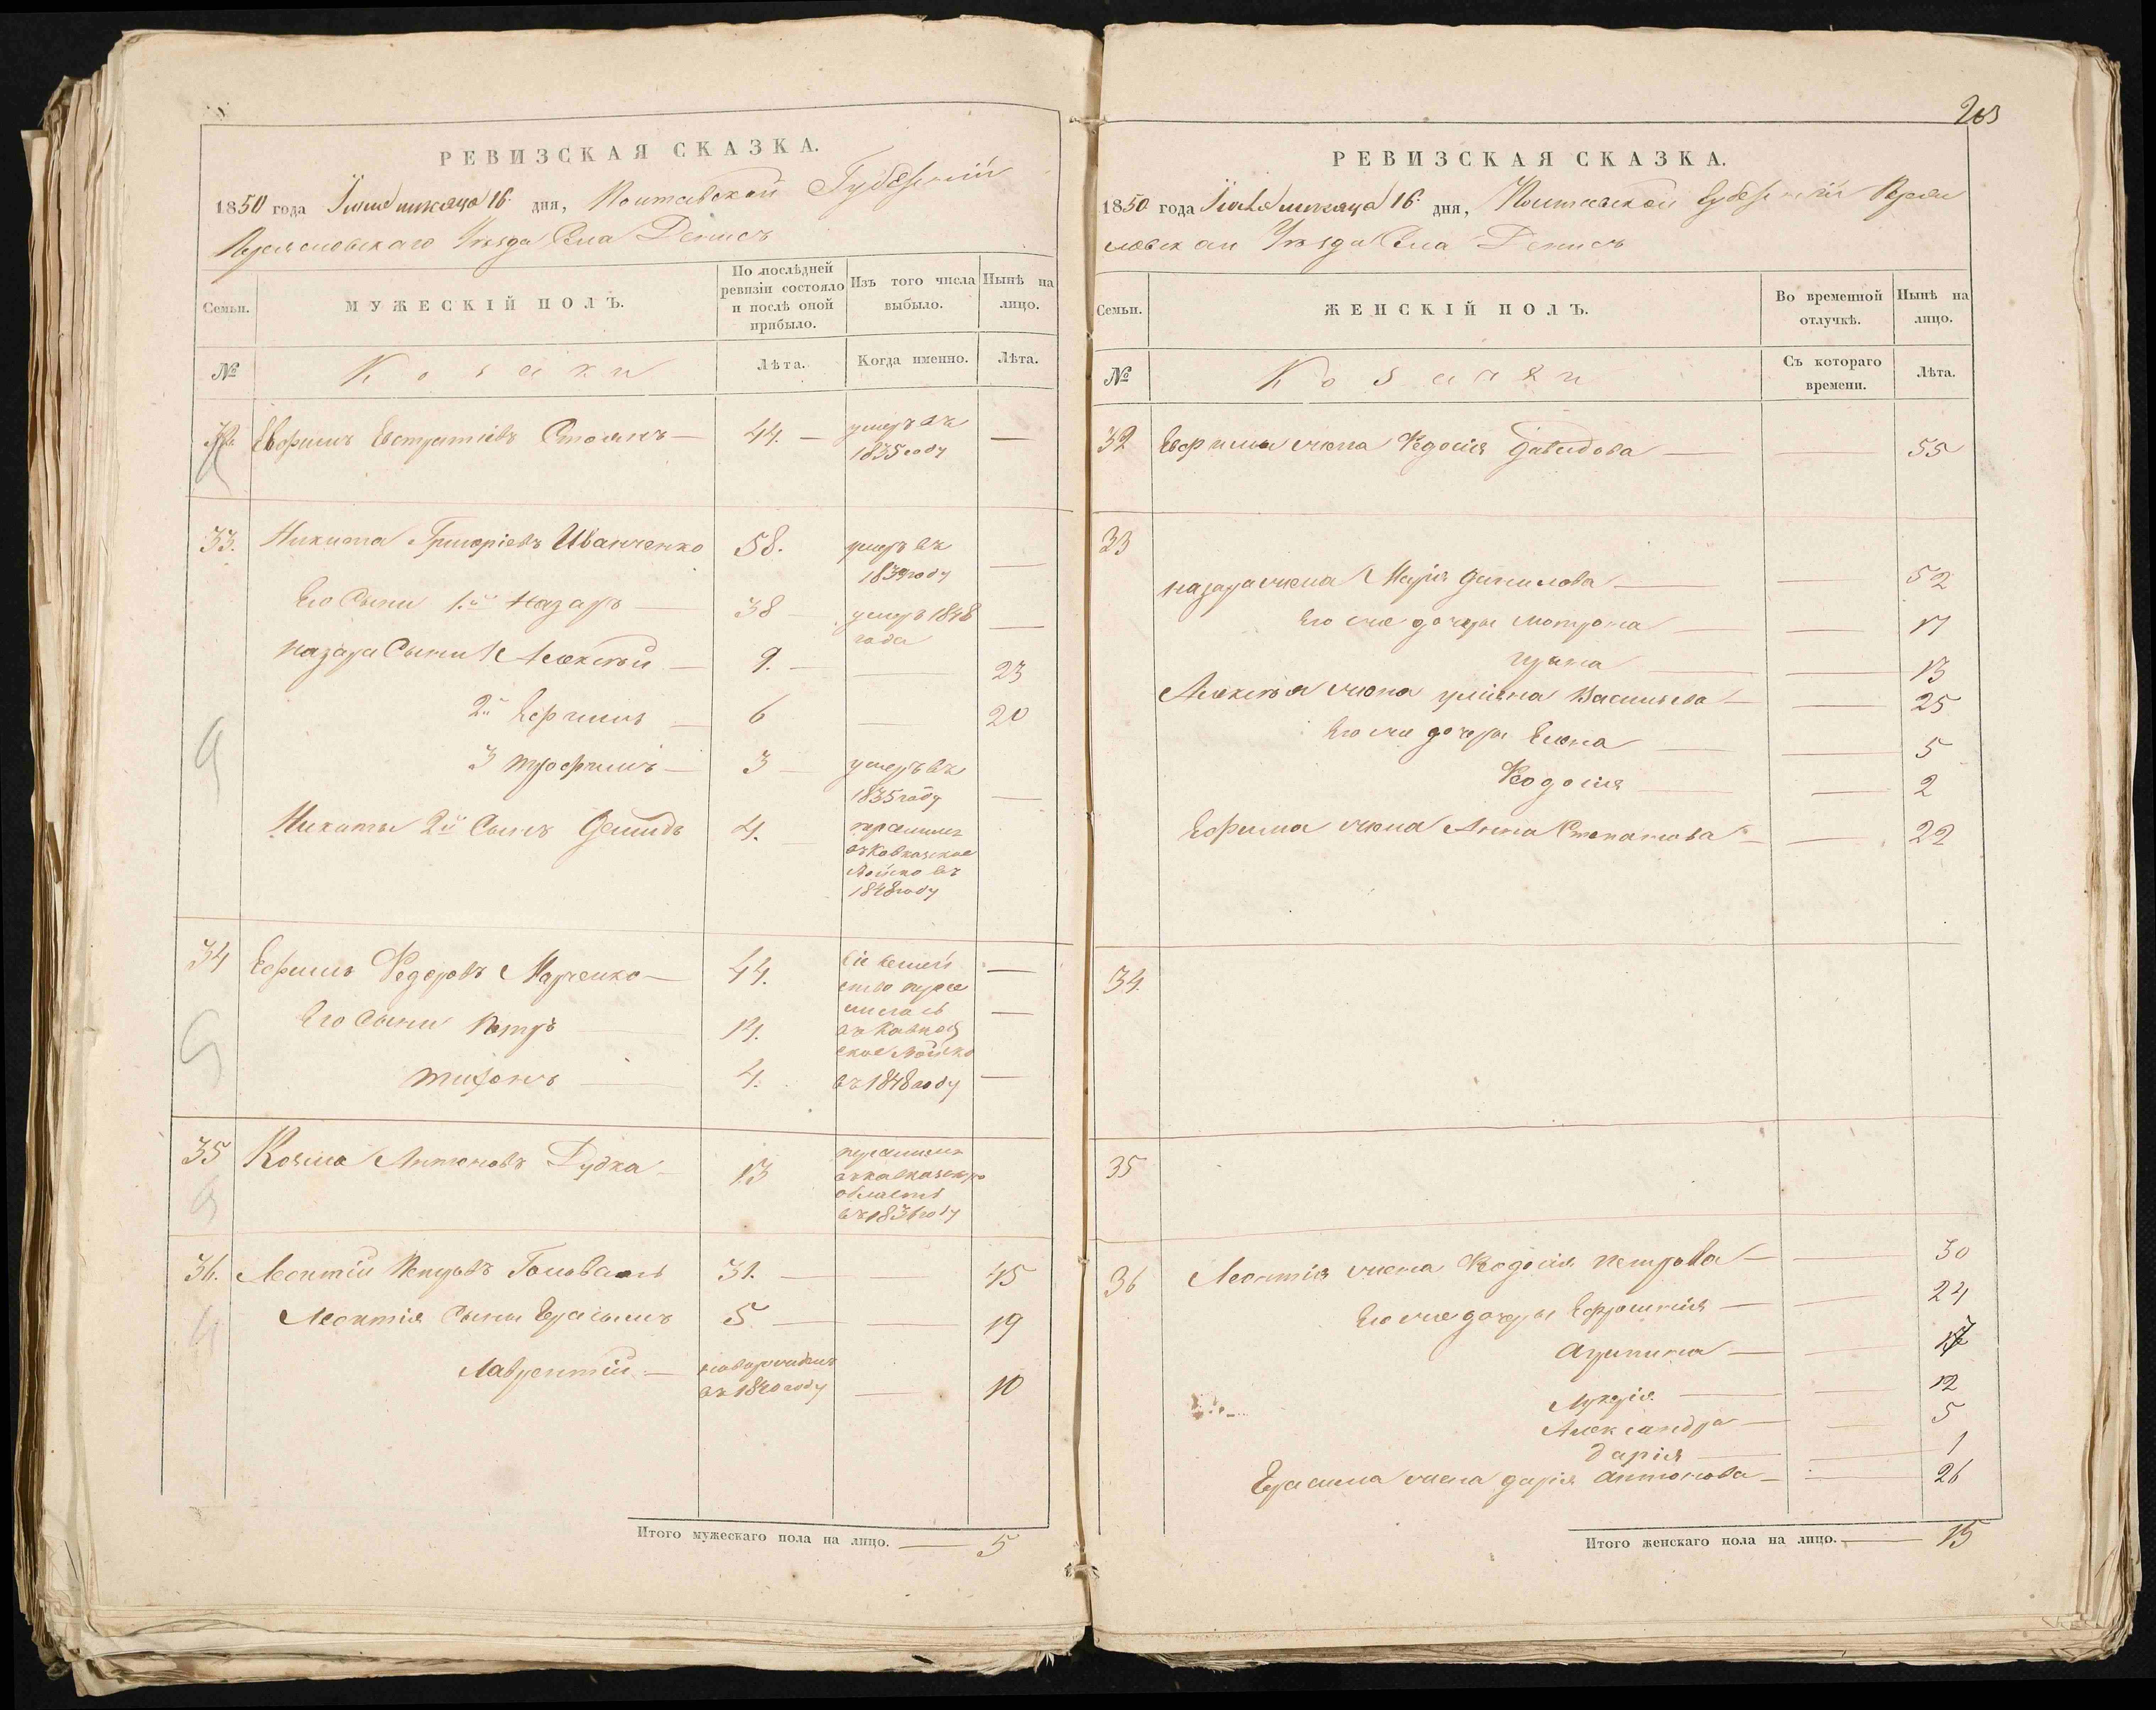 РЕВИЗСКАЯ СКАЗКА.
1850 года Июня месяца 16 дня, Полтавской Губерніи
Переясловскаго Уезда Села Денисъ
Семьи. МУЖЕСКІЙ ПОЛЪ. По послѣдней ревизіи состояло и послѣ оной прибыло. Изъ того числа выбыло. Нынѣ на лицо.
№ Козаки Лѣта. Когда именно. Лѣта.
32 Евфимъ Евстратіевъ Стоянъ — 44. — умеръ въ 1835 году —
33. Никита Григоріевъ Иванченко 58. умеръ въ 1839 году —
Его Сыны 1й Назаръ — 38 — умеръ 1848 года —
Назара Сыны 1 Алексѣй — 9. — — 23
2й Ефимъ — 6 — 20
3 Трофимъ — 3 — умеръ въ 1835 году —
Никиты 2й Сынъ Демидъ 4. — перешелъ въ Кавказкое Войско въ 1848 году
34 Ефимъ Федоровъ Марченко — 44. сіе семейство пере —
Его Сыны Петръ — 14. въ Кавказское Войско —
Тихонъ — 4. въ 1848 году —
35 Козма Антоновъ Дудка — 13 перешелъ въ кавказскую область въ 1831 году
36. Леонтій Петровъ Головань 31. — — 45
Леонтія Сыны Герасимъ 5 — — 19
Лаврентій — новорожденъ въ 1840 году — 10
Итого мужескаго пола на лицо. — 5
203
РЕВИЗСКАЯ СКАЗКА.
1850 года Июня месяца 16 дня, Полтавской Губерніи Перея
словскаго Уезда Села Денисъ
Семьи. ЖЕНСКІЙ ПОЛЪ. Во временной отлучкѣ. Нынѣ на лицо.
№ Козачки Съ котораго времени. Лѣта.
32 Евфима жена Федосія Давидова — — 55
33
Назара жена Марія Данилова — — 52
Его же дочери Мотрона — — 17
— — 13
Алексѣя жена Уліяна Васильева — — 25
Его же дочери Елена — — 5
Федосія — — 2
Ефима жена Анна Степанова — — 22
34.
35
36 Леонтія жена Федосія Петрова — — 30
Его же дочери Ефросинія — — 24
Агрипина — — 17
Лукерія — — 12
Александра — — 5
Дарія — — 1
Герасима жена Дарія Антонова — — 26
Итого женскаго пола на лицо. — 15